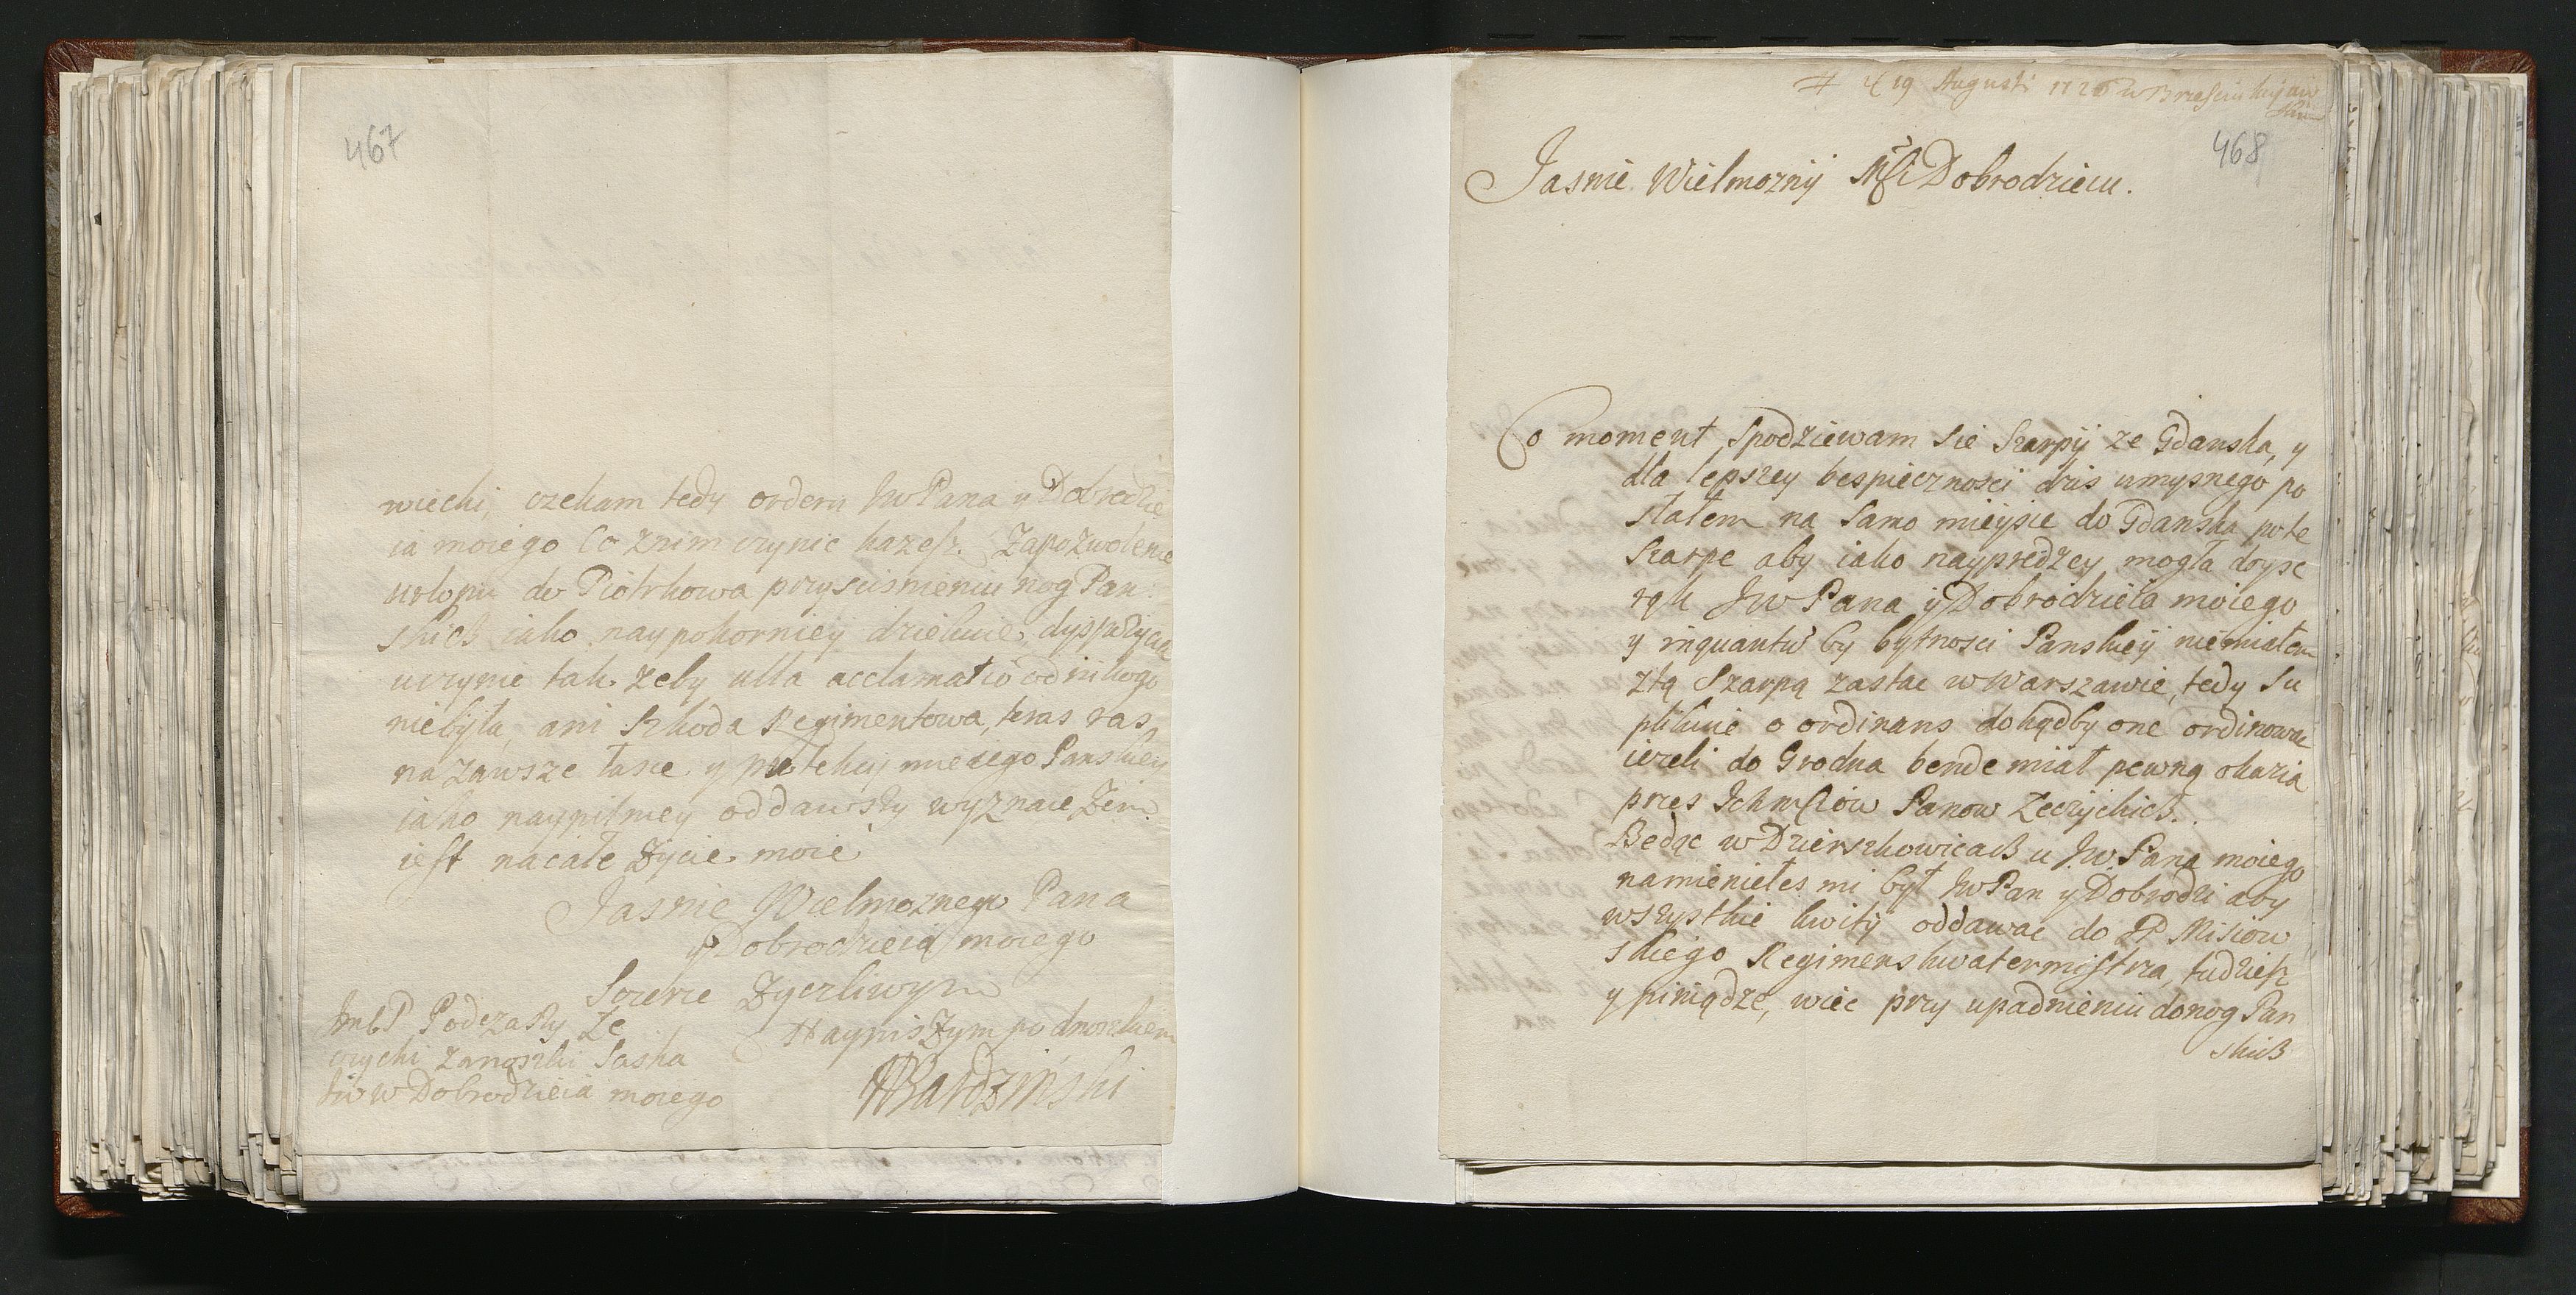 467
wiechi, czekam tedy orderu JwPana y Dobrodzie
ia moiego Co znim czynic kazesz. Zapozwolenie
urlopu do Piotrkowa przyscisnieniu nog Pan
skich iako naypokorniey dziekuie, dyspozycią
uczynie tak zeby ulla acclamatio od nikogo
niebyła, ani szkoda Regimentowa, teras zas
na zawsze łasce y protekcij
iako naypilniey oddawszy wyznaie Zem
iest nacałe Zycie moie
Jasnie Wielmoznego Pana
y Dobrodzieia moiego
Szczerze Zyczliwym
Nayniszym podnoszkiem
JmbP Podczaszy Ze
czychi zanoszki Saska
JWW Dobrodzieia moiego
Bardzinski
19 Augusti 1726 w Brzesciu kujaw
skim
468
Jasnie Wielmozny Mści Dobrodzieiu.
Co moment Spodziewam Sie Szarpij ze Gdanska, y
dla lepszey bespiecznosci dzis umysnego po
słałem na Samo mieysie do Gdanska po te
Szarpe aby iako nayprędzey mogła doysc
rąk JW Pana y Dobrodzieia moiego
y inquantu by bytnosci Panskiey niemiałem
ztą Szarpą zastac w Warszawie, tedy Su
plikuie o ordinans dokądby one ordinowac
iezeli do Grodna bende miał pewną okazią
przes Ichmściow Panow Zeczychich.
Bedąc w Dzierszkowicach u J.W. Pana moiego
namieniełes mi był JwPan y Dobrodzi aby
wszystkie kwity oddawac do JP Misiow
skiego Regimenskwatermistrza, tudziesz
y piniądze, wiec przy upadnieniu donog Pan
skich